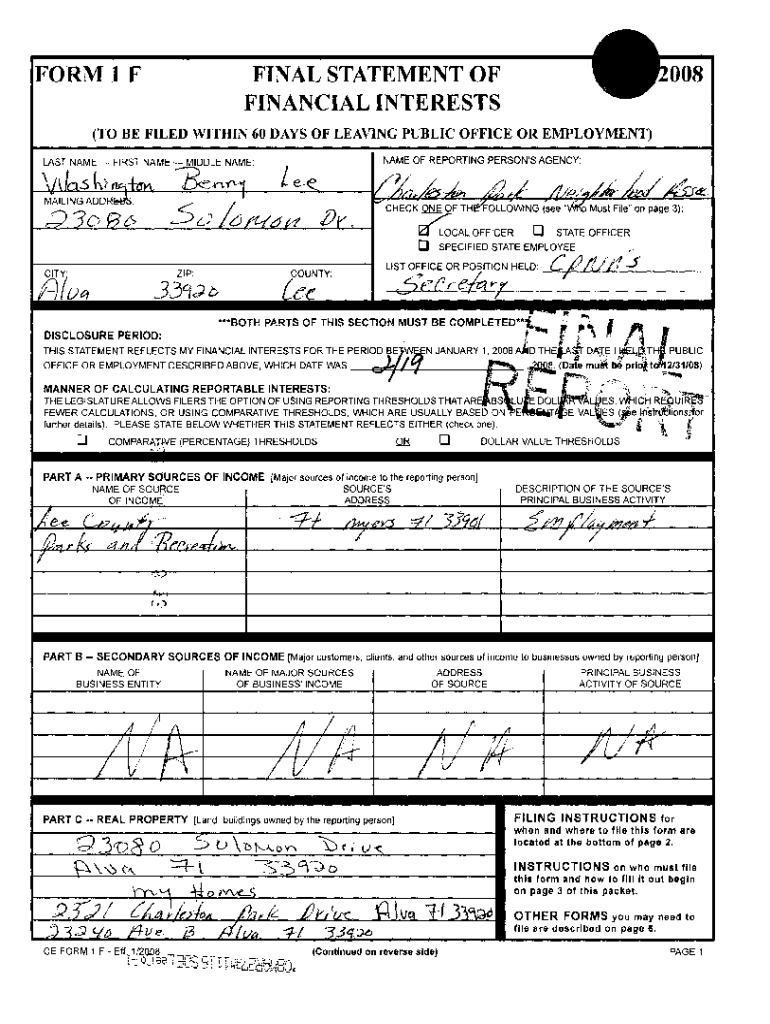 FORM 1 F FINAL STATEMENT OF 2008
FINANCIAL INTERESTS
(TO BE FILED WITHIN 60 DAYS OF LEAVING PUBLIC OFFICE OR EMPLOYMENT)
LAST NAME -- FIRST NAME -- MIDDLE NAME:
Washington Benny Lee
NAME OF REPORTING PERSON'S AGENCY:
Charleston Park Neighborhood Assoc
MAILING ADDRESS:
23080 Solomon Dr.
CHECK ONE OF THE FOLLOWING (see "Who Must File" on page 3):
LOCAL OFFICER STATE OFFICER
SPECIFIED STATE EMPLOYEE
LIST OFFICE OR POSITION HELD:
Secretary
CITY: ZIP: COUNTY:
Alva 33920 Lee
***BOTH PARTS OF THIS SECTION MUST BE COMPLETED***
FINAL
REPORT
DISCLOSURE PERIOD:
THIS STATEMENT REFLECTS MY FINANCIAL INTERESTS FOR THE PERIOD BETWEEN JANUARY 1, 2008 AND THE LAST DATE I HELD THE PUBLIC
OFFICE OR EMPLOYMENT DESCRIBED ABOVE, WHICH DATE WAS 2/19 2008. (Date must be prior to 12/31/08)
MANNER OF CALCULATING REPORTABLE INTERESTS:
THE LEGISLATURE ALLOWS FILERS THE OPTION OF USING REPORTING THRESHOLDS THAT ARE ABSOLUTE DOLLAR VALUES, WHICH REQUIRES
FEWER CALCULATIONS, OR USING COMPARATIVE THRESHOLDS, WHICH ARE USUALLY BASED ON PERCENTAGE VALUES (see instructions for
further details). PLEASE STATE BELOW WHETHER THIS STATEMENT REFLECTS EITHER (check one).
COMPARATIVE (PERCENTAGE) THRESHOLDS OR DOLLAR VALUE THRESHOLDS
PART A -- PRIMARY SOURCES OF INCOME [Major sources of income to the reporting person]
NAME OF SOURCE OF INCOME
SOURCE'S ADDRESS
DESCRIPTION OF THE SOURCE'S PRINCIPAL BUSINESS ACTIVITY
Lee County Ft Myers Fl 33901 Employment
Parks and Recreation
PART B -- SECONDARY SOURCES OF INCOME [Major customers, clients, and other sources of income to businesses owned by reporting person]
NAME OF BUSINESS ENTITY
NAME OF MAJOR SOURCES OF BUSINESS' INCOME
ADDRESS OF SOURCE
PRINCIPAL BUSINESS ACTIVITY OF SOURCE
NA NA NA NA
PART C -- REAL PROPERTY [Land, buildings owned by the reporting person]
23080 Solomon Drive
Alva Fl 33920
my Homes
2321 Charleston Park Drive Alva Fl 33920
23240 Ave B Alva Fl 33920
FILING INSTRUCTIONS for
when and where to file this form are
located at the bottom of page 2.
INSTRUCTIONS on who must file
this form and how to fill it out begin
on page 3 of this packet.
OTHER FORMS you may need to
file are described on page 6.
CE FORM 1 F - Eff. 1/2008 (Continued on reverse side) PAGE 1